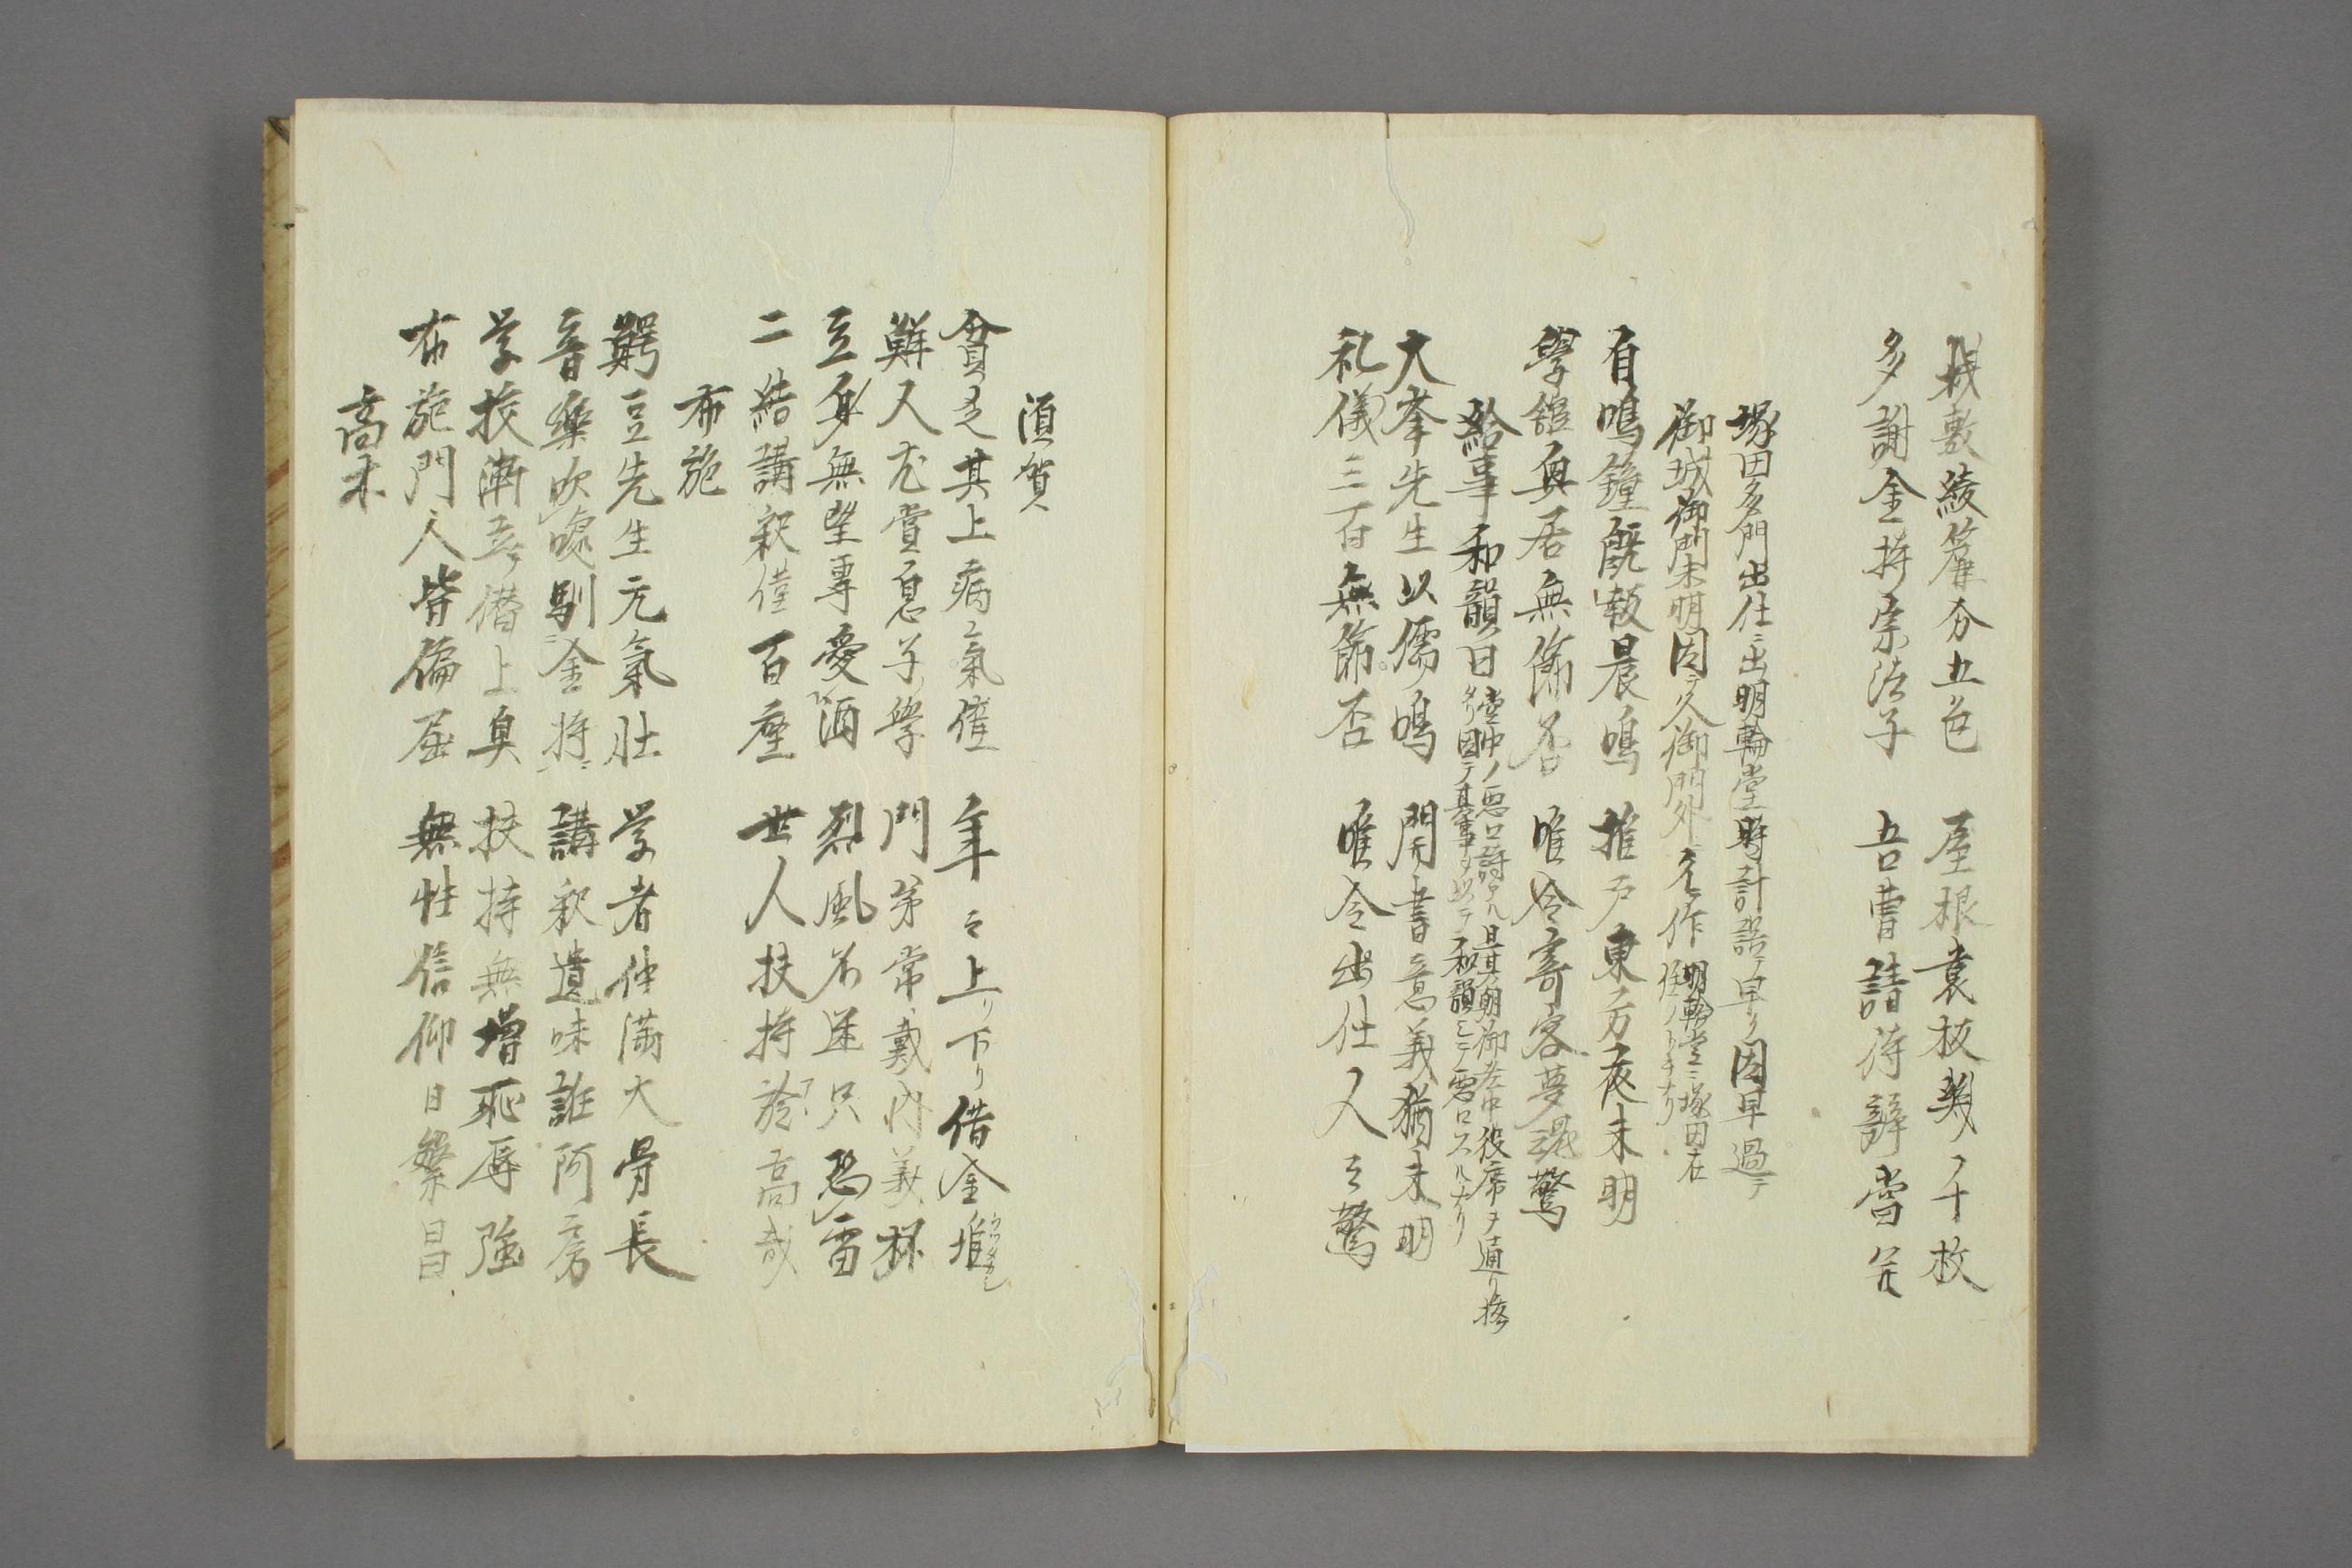 桟敷綾簾分五色　屋根裏板幾千枚
多謝金持宗浩子　吾曹請待辞当
塚田多門出仕ニ出明輪堂時計誤テ早ク因早過テ
御城御門未明因テ久御門外ニ
作明輪堂ニ塚田在
自鳴鐘既報晨鳴　推戸東方夜未明
学館奥居無余否　唯令寄客夢魂驚
給事和韻曰
堂中ノ悪口詩アル且其朝御老中役席ヲ通リ
因テ其事ヲ以テ和韻シテ悪口スルナリ
大峯先生以儒鳴　開書意義猶未明
礼儀三百無節否　唯令出仕人々驚
須賀
貧乏其上病気催　年々上リ下リ借金堆
鮮人尤賞息子学　門弟常戴内義杯
立身無望専愛酒　烈風不迷只恐雷
二結講釈僅百座　世人扶持於高哉
布施
鰐豆先生元気壮　学者仲満大骨長
音楽吹喚馴金持　講釈遺味誰阿房
学校漸立僭上臭　扶持無増恥辱強
布施門人皆偏屈　無性信仰日繁昌
高木